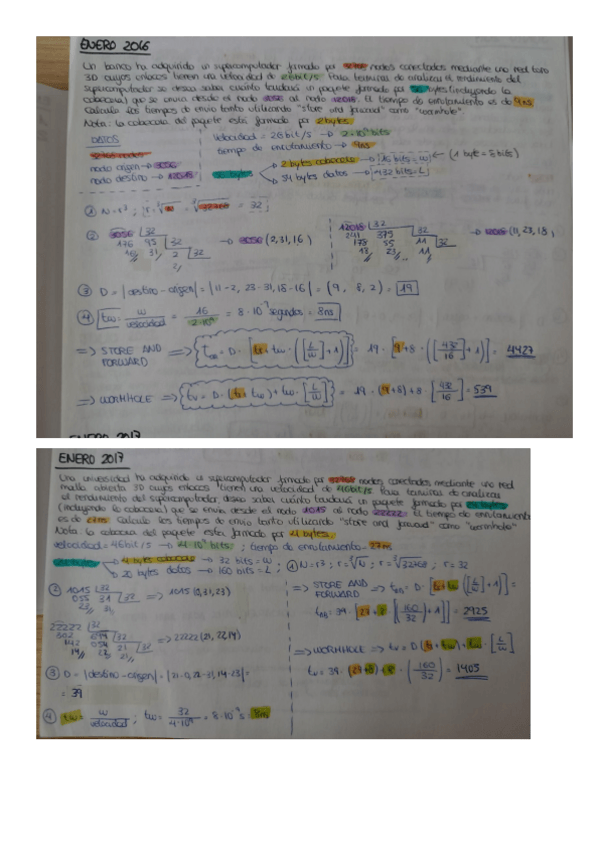 ENERO 2016
Un banco ha adquirido un supercomputador formado por nodos conectados mediante una red toro
3D cuyos enlaces tienen una velocidad de 2Gbit/s. Para tratar de analizar el rendimiento del
supercomputador se desea saber cuánto tardará un paquete formado por 56 bytes (incluyendo la
cabecera) que se envía desde el nodo 3056 al nodo 12018. El tiempo de enrutamiento es de 9ns
Calcula los tiempos de envío tanto utilizando "store and forward" como "wormhole".
Nota: la cabecera del paquete está formada por 2 bytes
DATOS
nodo origen → 3056
nodo destino → 12018
velocidad = 2Gbit/s → 2·10⁹ bits
tiempo de enrutamiento → 9ns
56 bytes
2 bytes cabecera → 16 bits = W → (1 byte = 8 bits)
54 bytes datos → 432 bits = L
① N = r³ ; r = = 32
② 3056 32
176 95 32
16 31 2 32
→ 3056 (2,31,16)
12018 32
241 375 32
178 55 11 32
18 23 11
→ 12018 (11, 23, 18)
③ D = |destino - origen| = |11-2, 23-31, 18-16| = (9, 8, 2) = 19
④ tw = W / velocidad = 16 / 2·10⁹ = 8·10⁻⁹ segundos = 8ns
⇒ STORE AND FORWARD ⇒ = D · [ + tw · ([L/W] + 1)] = 19 · [9+8 · ([432/16] + 1)] = 4427
⇒ WORMHOLE ⇒ = D · ( + tw) + tw · [L/W] = 19 · (9+8) + 8 · [432/16] = 539
ENERO 2017
Una universidad ha adquirido un supercomputador formado por nodos conectados mediante una red
malla abierta 3D cuyos enlaces tienen una velocidad de 4Gbit/s. Para tratar de analizar
el rendimiento del supercomputador, desea saber cuánto tardará un paquete formado por 24 bytes
(incluyendo la cabecera) que se envía desde el nodo 1015 al nodo 22222. El tiempo de enrutamiento
es de 27ns. Calcula los tiempos de envío tanto utilizando "store and forward" como "wormhole"
Nota: la cabecera del paquete está formada por 4 bytes.
velocidad = 4Gbit/s → 4·10⁹ bits ; tiempo de enrutamiento = 27ns
4 bytes cabecera → 32 bits = W
20 bytes datos → 160 bits = L
① N = r³ ; r = ∛N ; r = ∛32768 ; r = 32
② 1015 32
055 31 32
23
⇒ 1015 (0,31,23)
22222 32
302 694 32
142 054 21 32
14 22 21
⇒ 22222 (21, 22, 14)
③ D = |destino - origen| = |21-0, 22-31, 14-23| =
= 39
④ tw = W / velocidad ; tw = 32 / 4·10⁹ = 8·10⁻⁹ s = 8ns
⇒ STORE AND FORWARD ⇒ = D · [ + tw · ([L/W] + 1)] =
= 39 · [27 + 8 · ([160/32] + 1)] = 2925
⇒ WORMHOLE ⇒ = D ( + tw) + tw · [L/W]
= 39 · (27+8) + 8 · (160/32) = 1405
ENERO 2017